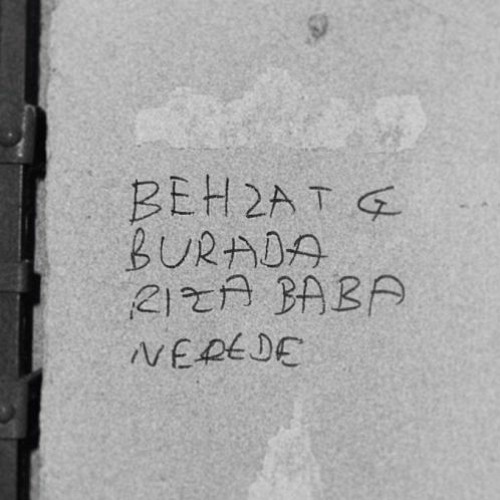 BEHZAT Ç
BURADA
RIZA BABA
NEREDE